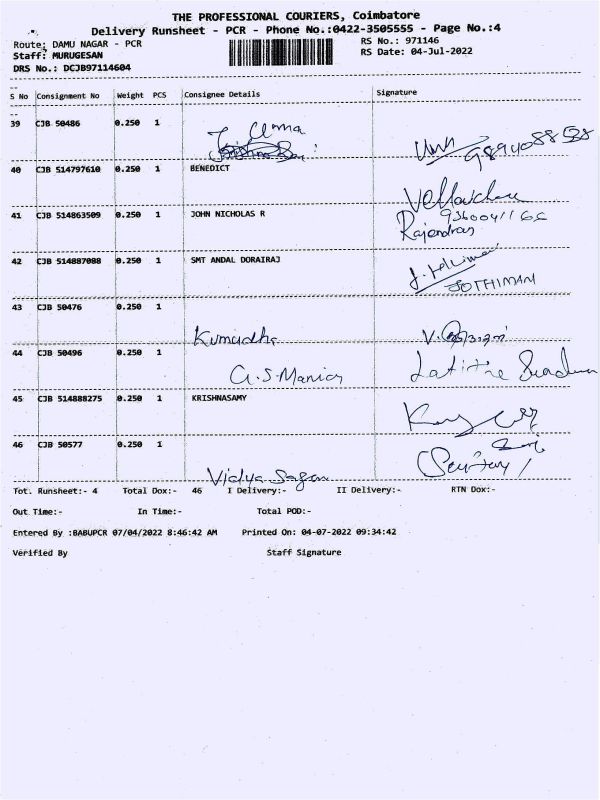 THE PROFESSIONAL COURIERS, Coimbatore
Delivery Runsheet - PCR - Phone No.:0422-3505555 - Page No.:4
Route: DAMU NAGAR - PCR
RS No.: 971146
Staff: MURUGESAN
RS Date: 04-Jul-2022
DRS No.: DCJB97114604
S No Consignment No Weight PCS Consignee Details Signature
39 CJB 50486 0.250 1
Umma
9894088538
40 CJB 514797610 0.250 1 BENEDICT
41 CJB 514863509 0.250 1 JOHN NICHOLAS R
Rajendran
42 CJB 514887088 0.250 1 SMT ANDAL DORAIRAJ
JOTHIMANI
43 CJB 50476 0.250 1
Kumudha
44 CJB 50496 0.250 1
G.S.Manian
45 CJB 514888275 0.250 1 KRISHNASAMY
46 CJB 50577 0.250 1
Vidya Sagan
Tot. Runsheet:- 4 Total Dox:- 46 I Delivery:- II Delivery:- RTN Dox:-
Out Time:- In Time:- Total POD:-
Entered By :BABUPCR 07/04/2022 8:46:42 AM Printed On: 04-07-2022 09:34:42
Verified By Staff Signature